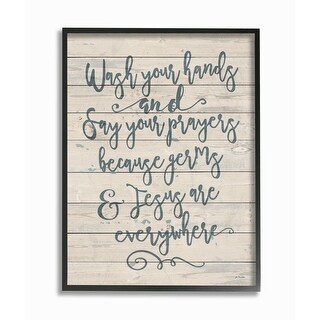 Wash your hands
and
Say your prayers
because germs
& Jesus are
everywhere